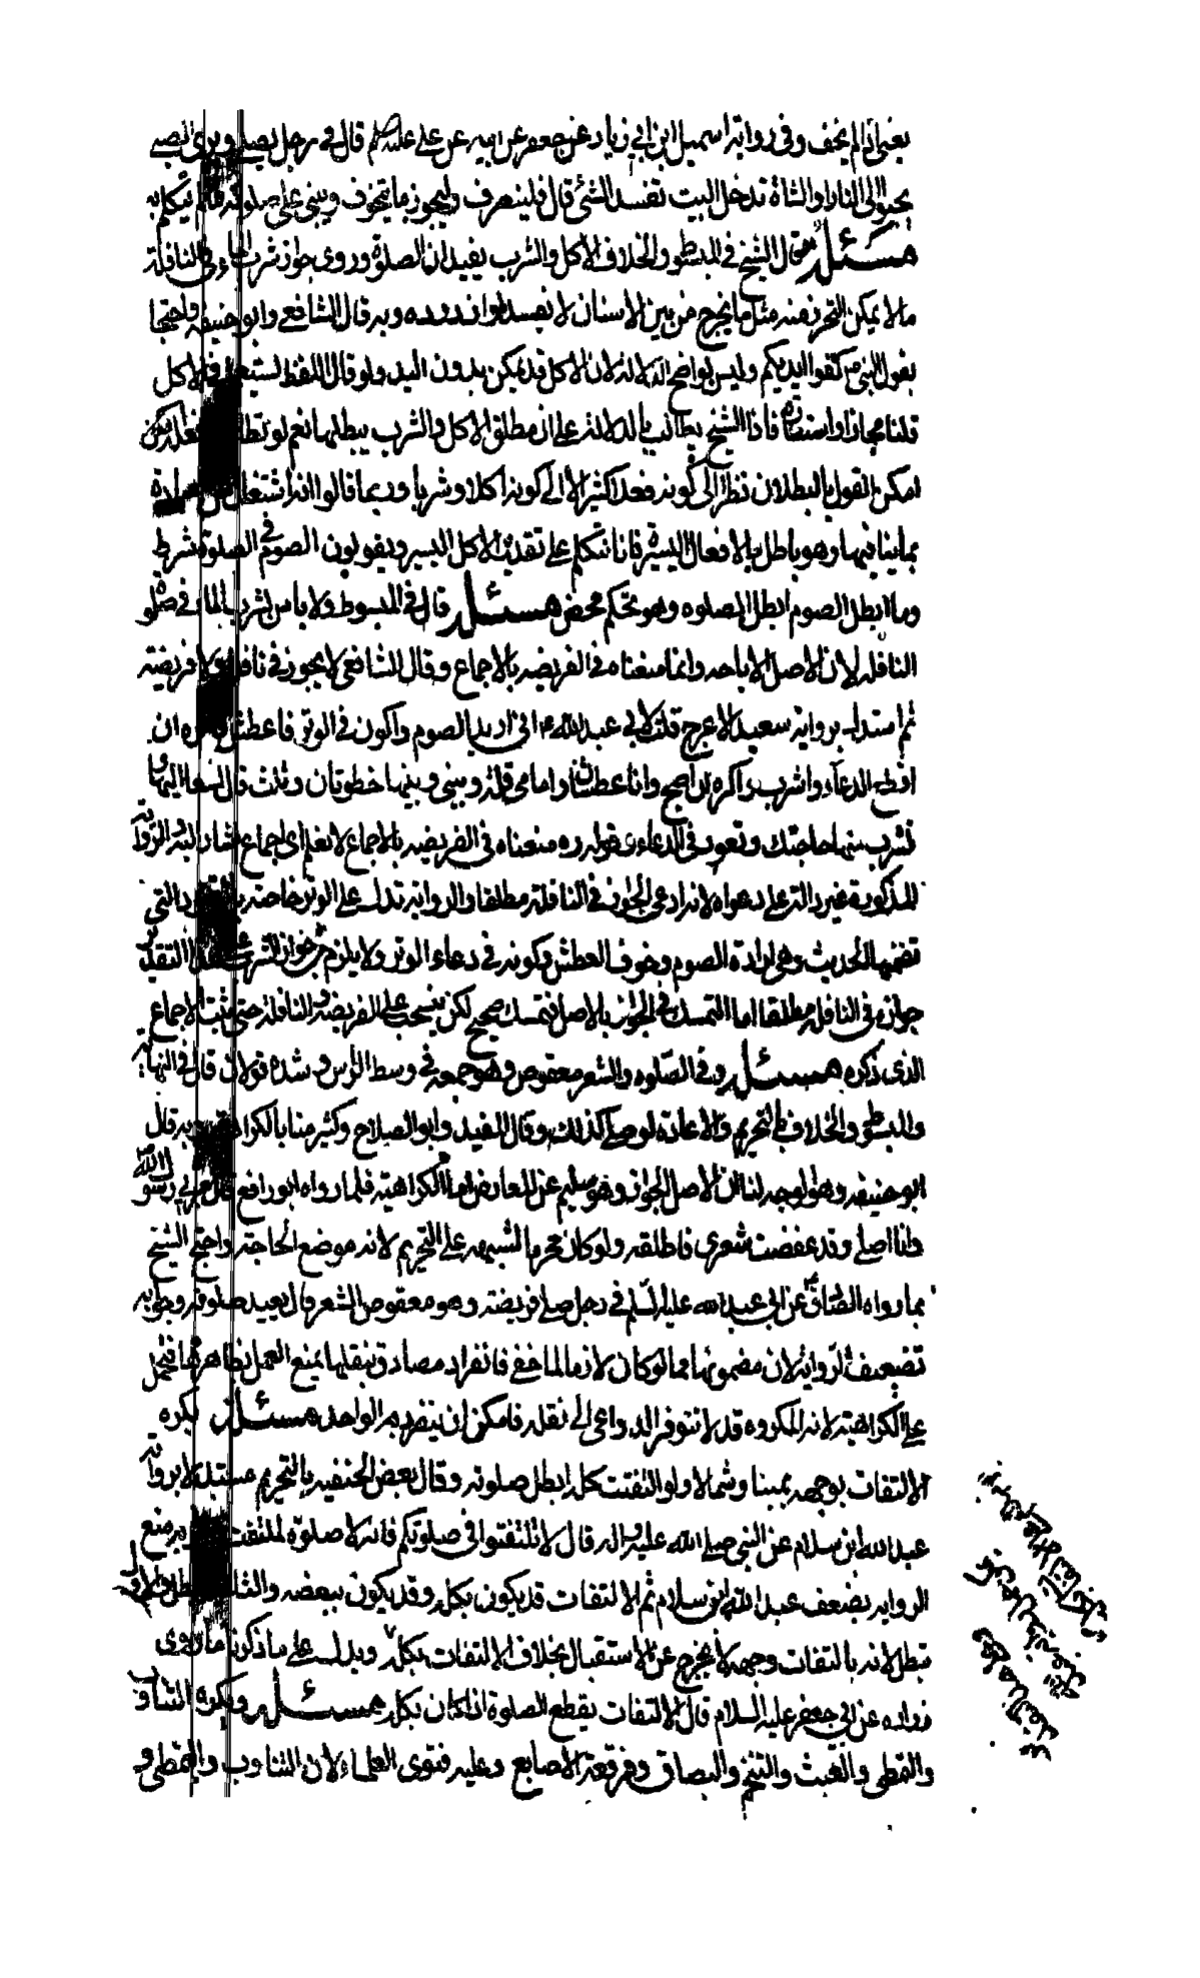 يعني اذا لم يخف وفي رواية اسمعيل ابن ابي زياد عن جعفر عن ابيه عن علي عليهم قال في رجل يصلي ويرى الصبي
يحبو الى النار او الشاة تدخل البيت تفسد الشئ قال فلينصرف وليحرز ما يتخوف ويبني على صلوته ما لم يتكلم
مسئله قال الشيخ في المبسوط والخلاف الاكل والشرب يفسدان الصلوة وروى جواز شرب الماء في النافلة
ما لا يمكن التحرز منه مثل ما يخرج من بين الاسنان لا يفسد لو ازدرده وبه قال الشافعي وابو حنيفه واحتجا
بقول النبي ص كفوا ايديكم وليس بواضح الدلالة لان الاكل قد يمكن بدون اليد ولو قال اللفظ يستعمل في الاكل
قلنا مجازا واستعارة فاذا الشيخ يطالب بالدلالة على ان مطلق الاكل والشرب يبطلها نعم لو تطاول
امكن القول بالبطلان نظرا الى كونه فعلا كثيرا لا الى كونه اكلا وشربا وربما قالوا انه اشتغل
بما ينافيها وهو باطل بالافعال اليسيرة فانا نتكلم على تقدير الاكل اليسير ويقولون الصوم في الصلوة شرط
وما ابطل الصوم ابطل الصلوه وهو تحكم محض مسئله قال في المبسوط ولا باس بشرب الماء في صلوة
النافله لان الاصل الاباحه وانما منعناه في الفريضه بالاجماع وقال الشافعي لا يجوز في نافلة ولا فريضة
ثم استدل برواية سعيد الاعرج قلت لابي عبد الله ع اني اريد الصوم واكون في الوتر فاعطش فاكره ان
اقطع الدعاء واشرب واكره ان اصبح وانا عطشان وامامي قلة وبيني وبينها خطوتان وثلث قال تسعا اليها و
تشرب منها حاجتك وتعود في الدعاء وقوله ره منعناه في الفريضه بالاجماع لا نعلم اي اجماع اشار اليه والرواية
المذكورة غير دالة على دعواه لانه ادعى الجواز في النافلة مطلقا والرواية تدل على الوتر خاصة بالقيود التي
تضمنها الحديث وهي ارادة الصوم وخوف العطش وكونه في دعاء الوتر ولا يلزم من جواز الشرب على هذا التقدير
جوازه في النافلة مطلقا اما التمسك في الجواز بالاصل فتمسك صحيح لكن ينسحب على الفريضة والنافلة حتى يثبت الاجماع
الذي ذكره مسئله وفي الصلوه والشعر معقوص وهو جمعه في وسط الرأس وشده قولان قال في النهاية
والمبسوط والخلاف بالتحريم والاعادة لو صلى كذلك وقال المفيد وابو الصلاح وكثير منا بالكراهة وبه قال
ابو حنيفه وهو الوجه لنا ان الاصل الجواز وهو سليم عن المعارض اما الكراهية فلما رواه ابو رافع قال مر بي رسول الله ص
وانا اصلي وقد عقصت شعري فاطلقه ولو كان محرما لنبهه على التحريم لانه موضع الحاجة واحتج الشيخ
بما رواه عن ابي عبد الله عليه السلم في رجل صلى فريضة وهو معقوص الشعر قال يعيد صلوته وجوابه
تضعيف الرواية لان مضمونها مما لو كان لازما لما خفي فانفراد مصادق بنقلها يمنع العمل بظاهرها فتحمل
على الكراهية لانه المكروه قد لا تتوفر الدواعي الى نقله فامكن ان ينفرد به الواحد مسئله يكره
الالتفات بوجهه يمينا وشمالا ولو التفت بكله ابطل صلوته وقال بعض الحنفيه بالتحريم مستدلا برواية
عبد الله ابن سلام عن النبي صلى الله عليه واله قال لا تلتفتوا في صلوتكم فانه لا صلوة لملتفت وبه منع
الرواية بضعف عبد الله ابن سلام ثم الالتفات قد يكون بكله وقد يكون ببعضه والاول
تبطل لانه بالتفات وجهه لا يخرج عن الاستقبال بخلاف الالتفات بكله ويدل على ما ذكرنا ما روى
زراره عن ابي جعفر عليه السلام قال الالتفات يقطع الصلوة اذا كان بكله مسئله ويكره التثاوب
والتمطي والعبث والتنخم والبصاق وفرقعة الاصابع وعليه فتوى العلماء لان التثاوب والتمطي و